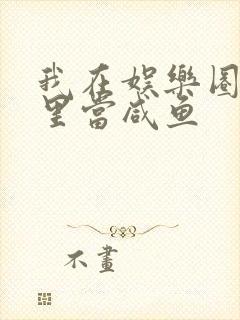 我在娛樂圈
里當咸鱼
不畫